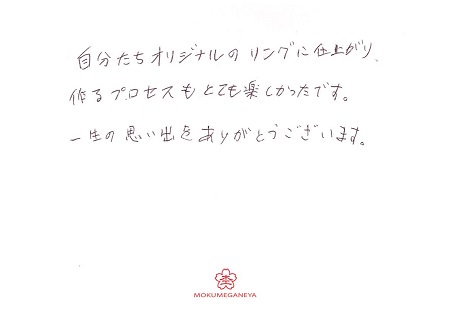 自分たちオリジナルのリングに仕上がり、
作るプロセスもとても楽しかったです。
一生の思い出をありがとうございます。
MOKUMEGANEYA